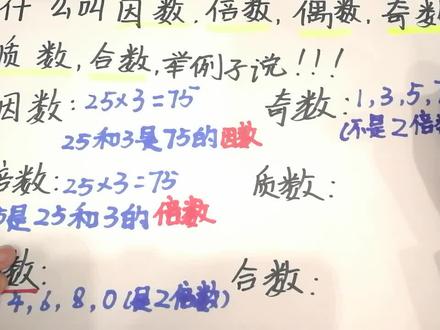 什么叫因数.倍数,偶数,奇数
质数,合数,举例子说!!!
因数:25×3=75
25和3是75的因数
奇数:1,3,5,
(不是2倍数
倍数:25×3=75
是25和3的倍数
质数:
数:
4,6,8,0(是2倍数)
合数: